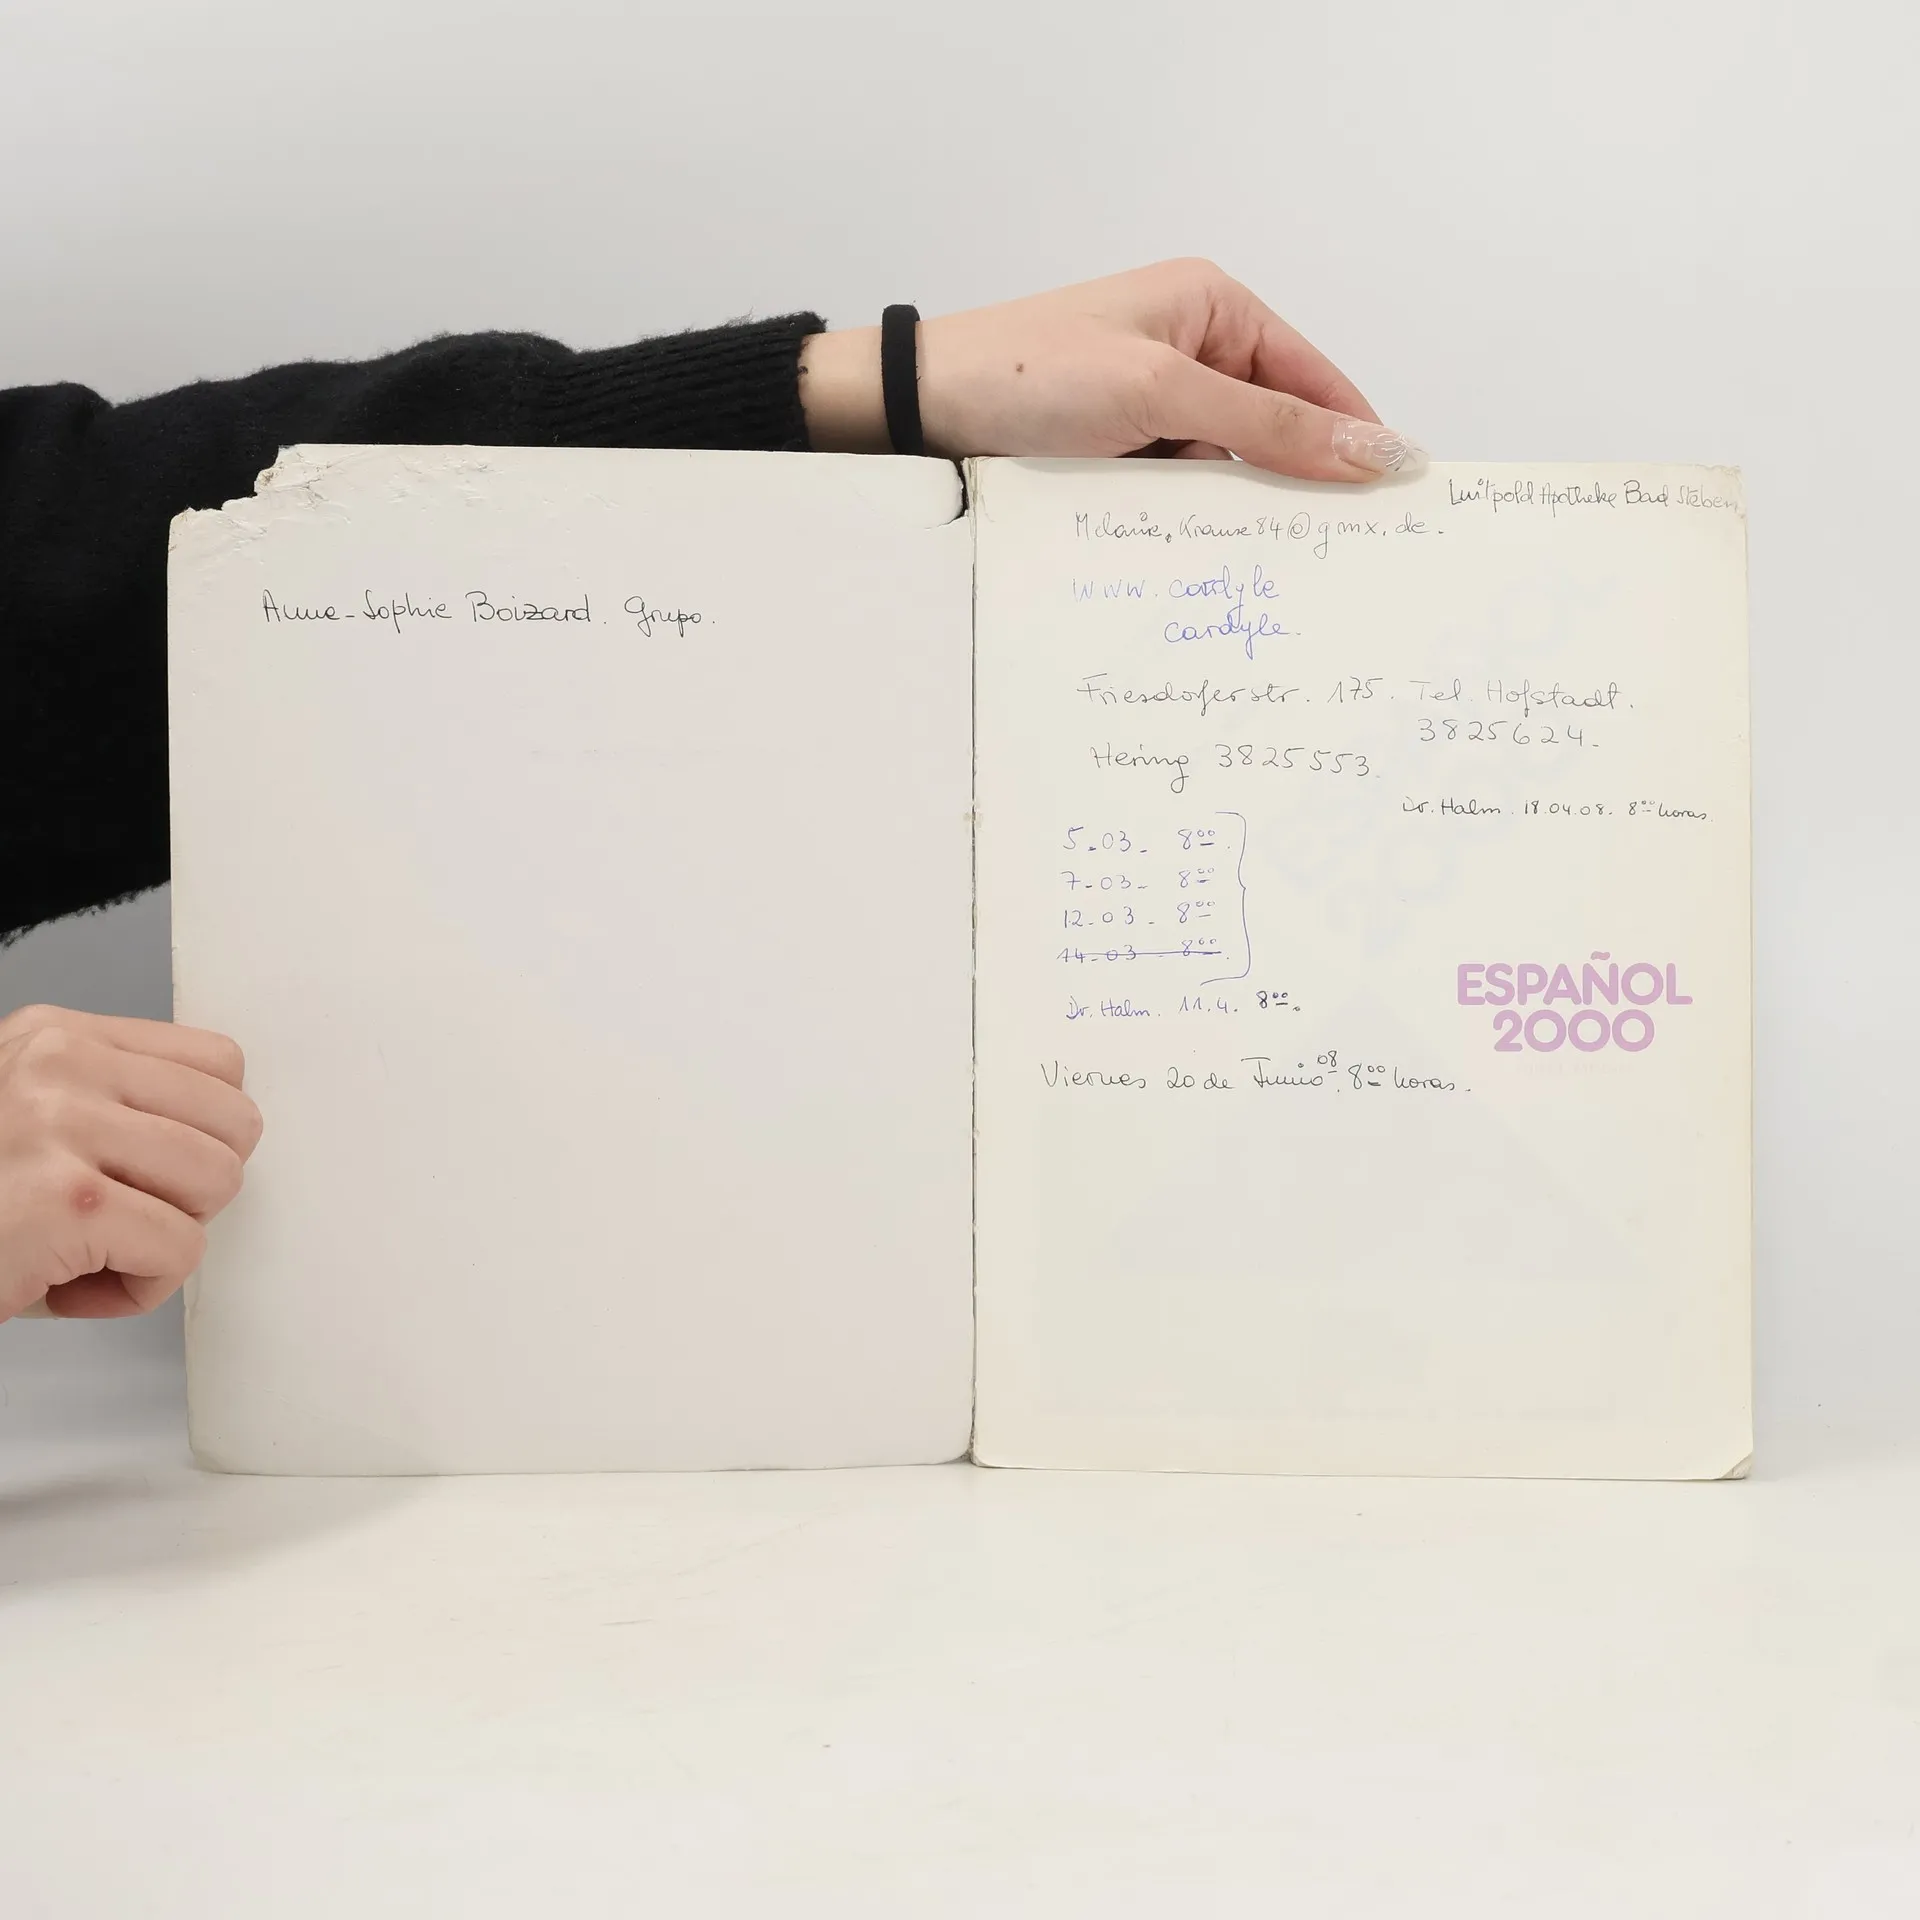 Anne-Sophie Boizard. Grupo.
Luitpold Apotheke Bad Steben
Melanie.Krause84@gmx.de.
www. cardyle
cardyle.
Friesdorferstr. 175. Tel. Hofstadt.
3825624.
Hering 3825553.
Dr. Halm. 18.04.08. 8:00 horas.
5-03- 8:00.
7-03- 8:00
12-03- 8:00
14-03 - 8:00.
Dr. Halm. 11.4. 8:00.
ESPAÑOL
2000
Viernes 20 de Junio 08. 8:00 horas.